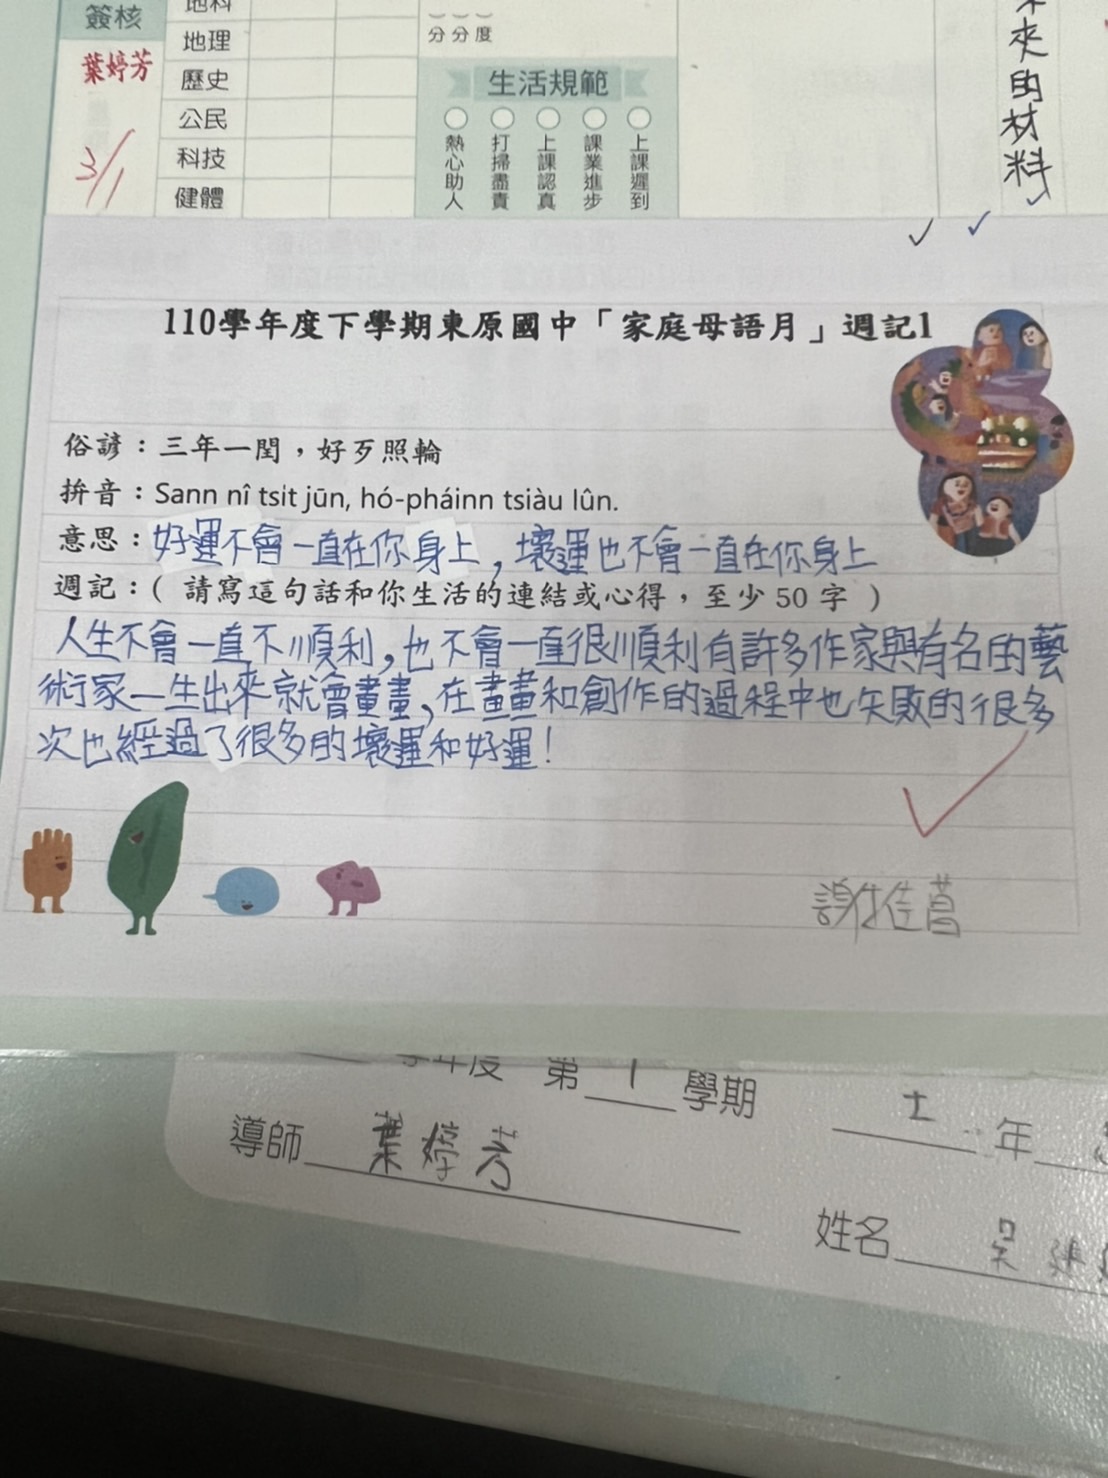 簽核
葉婷芳
3/1
地科
地理
歷史
公民
科技
健體
分 分 度
生活規範
熱心助人
打掃盡責
上課認真
課業進步
上課遲到
夾的材料
110學年度下學期東原國中「家庭母語月」週記1
俗諺：三年一閏，好歹照輪
拼音：Sann nî tsi̍t jūn, hó-pháinn tsiàu lûn.
意思：好運不會一直在你身上，壞運也不會一直在你身上
週記：( 請寫這句話和你生活的連結或心得，至少 50 字 )
人生不會一直不順利，也不會一直很順利有許多作家與有名的藝
術家一生出來就會畫畫，在畫畫和創作的過程中也失敗的很多
次也經過了很多的壞運和好運！
學年度 第 1 學期
年
導師 葉婷芳
姓名 吳